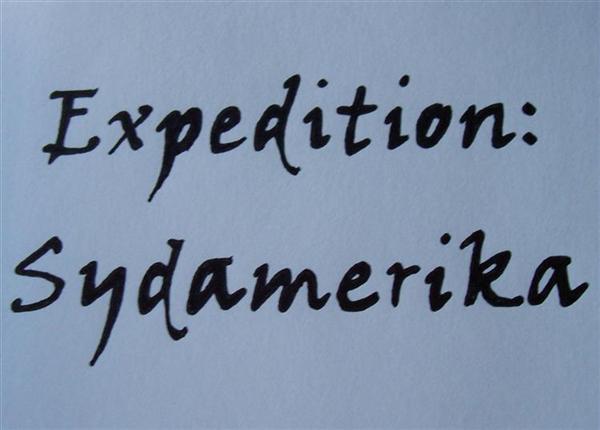 Expedition:
Sydamerika